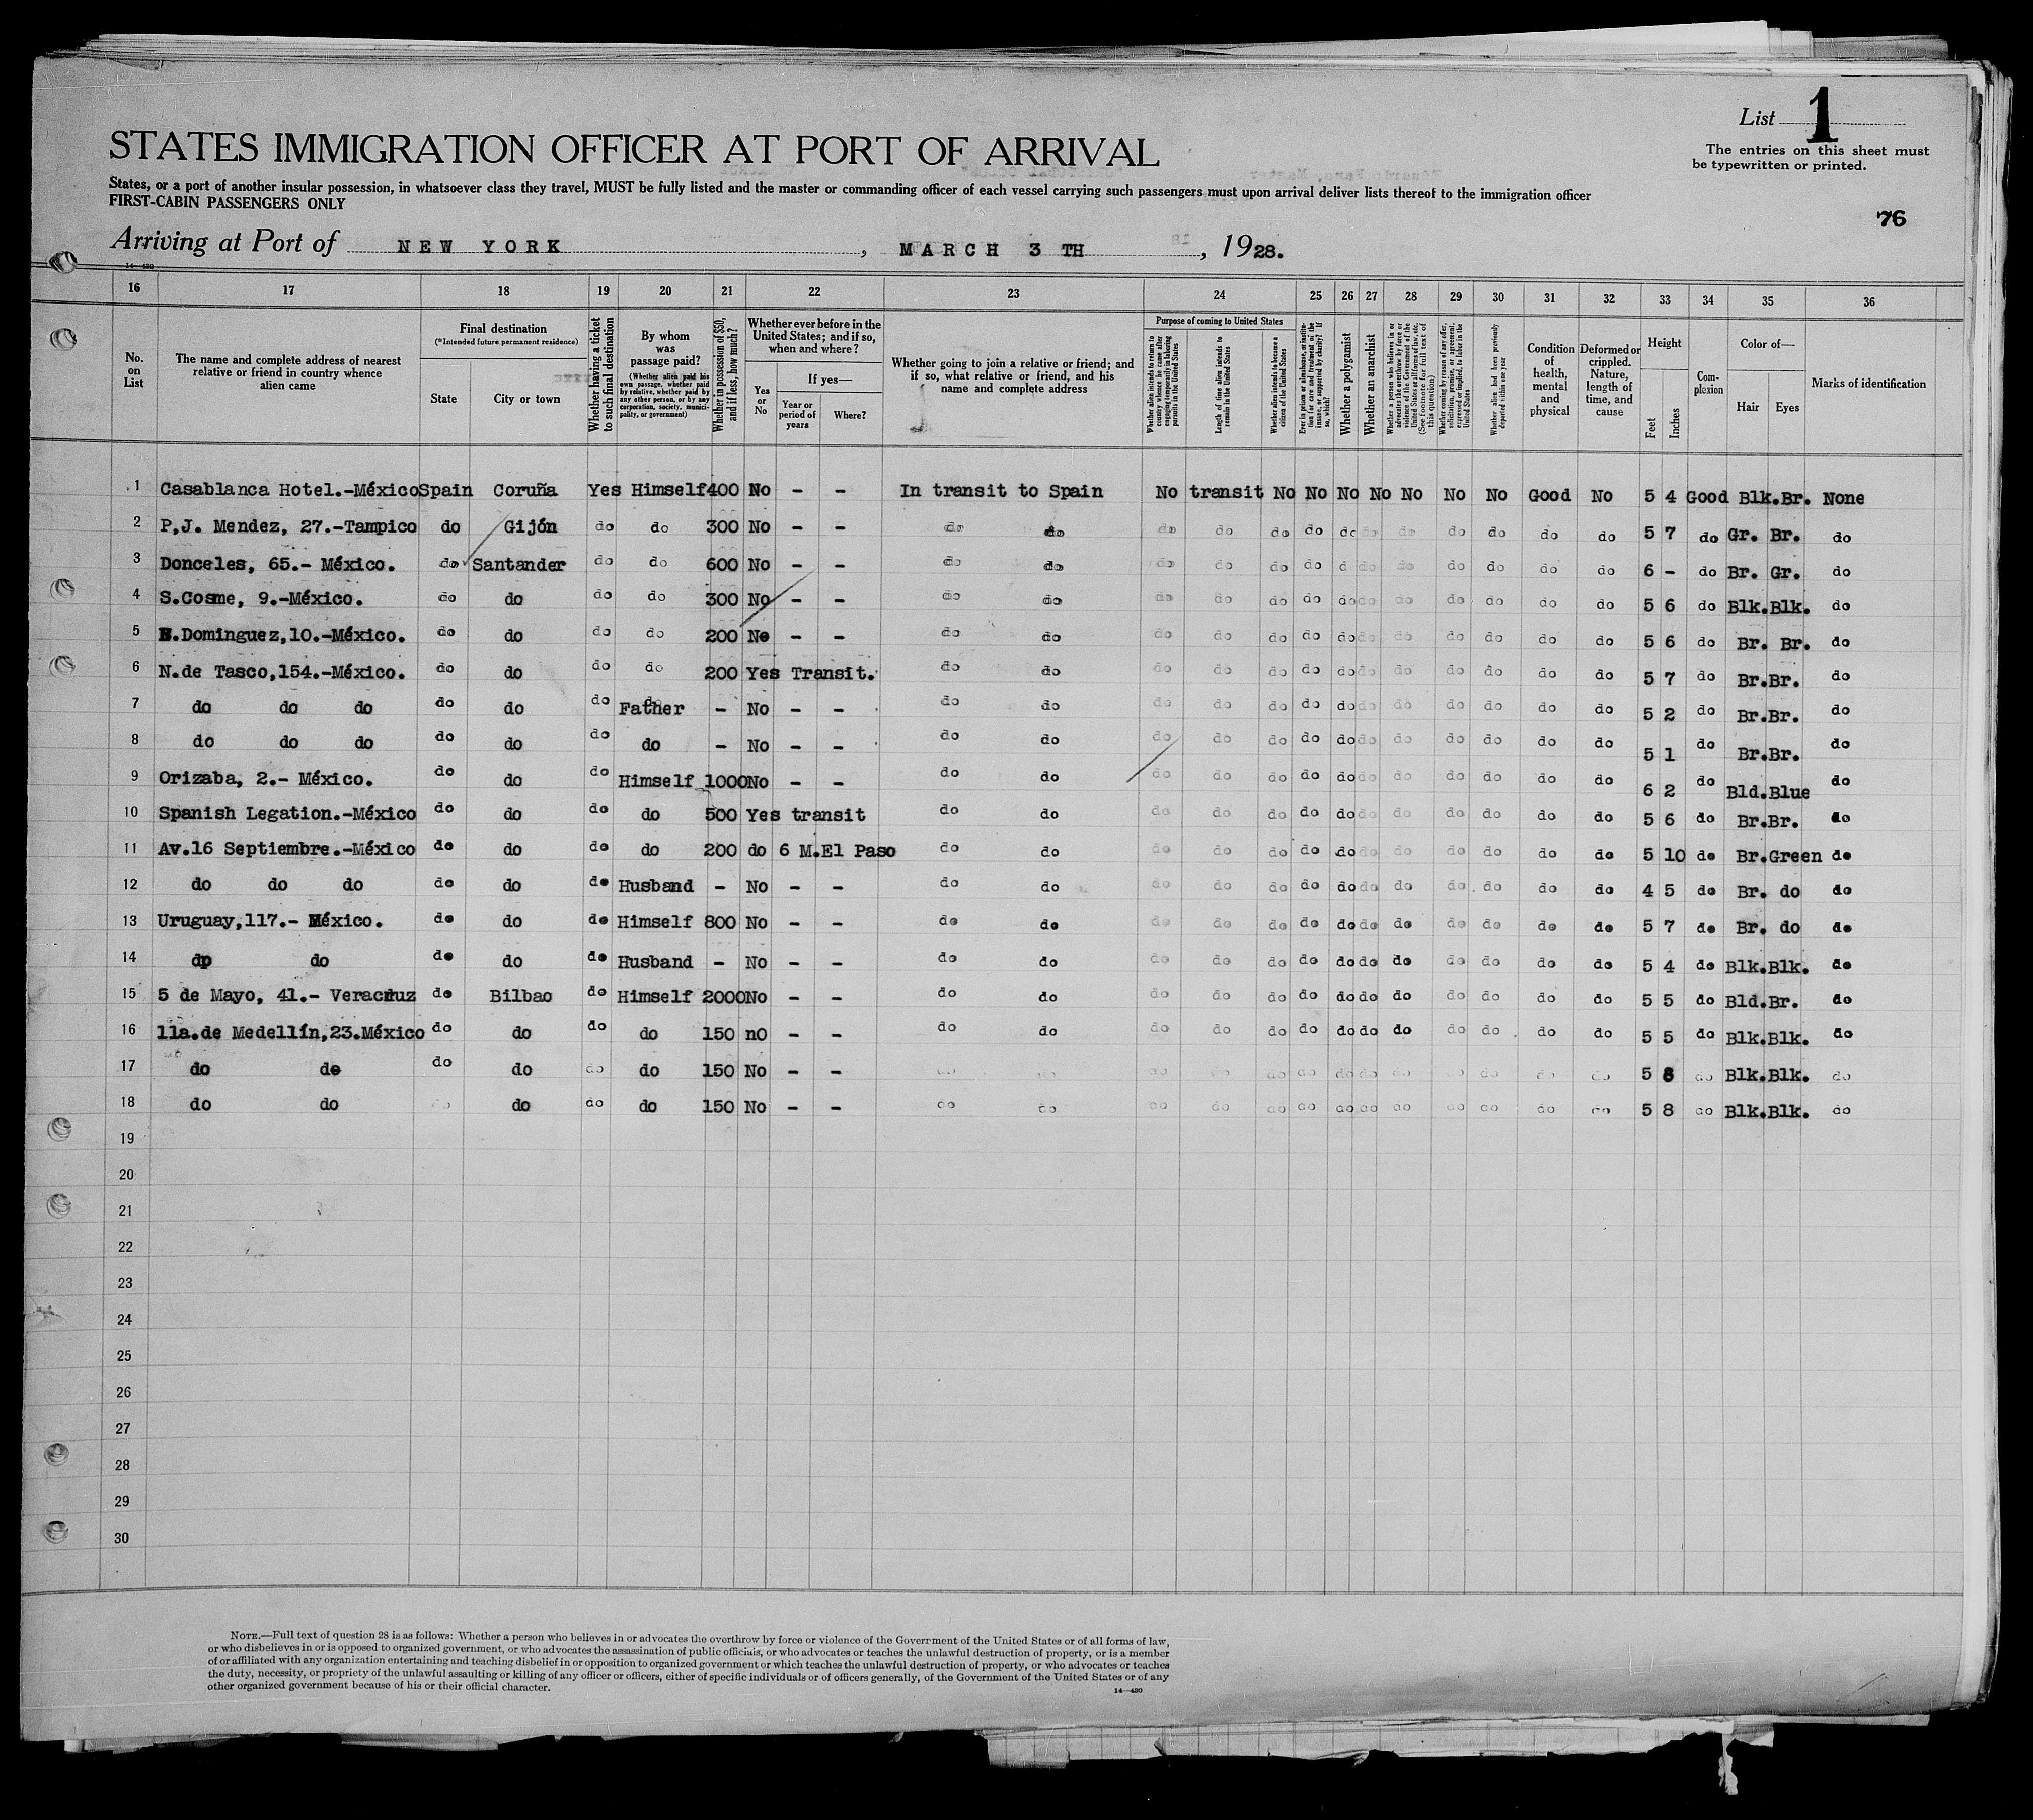 List 1
The entries on this sheet must
be typewritten or printed.
STATES IMMIGRATION OFFICER AT PORT OF ARRIVAL
States, or a port of another insular possession, in whatsoever class they travel, MUST be fully listed and the master or commanding officer of each vessel carrying such passengers must upon arrival deliver lists thereof to the immigration officer
FIRST-CABIN PASSENGERS ONLY
76
Arriving at Port of NEW YORK, MARCH 3 TH, 1928.
14—430
16 17 18 19 20 21 22 23 24 25 26 27 28 29 30 31 32 33 34 35 36
No. on List
The name and complete address of nearest relative or friend in country whence alien came
Final destination
(*Intended future permanent residence)
State
City or town
Whether having a ticket to such final destination
By whom was passage paid?
(Whether alien paid his own passage, whether paid by relative, whether paid by any other person, or by any corporation, society, municipality, or government)
Whether in possession of $50, and if less, how much?
Whether ever before in the United States; and if so, when and where?
Yes or No
If yes—
Year or period of years
Where?
Whether going to join a relative or friend; and if so, what relative or friend, and his name and complete address
Purpose of coming to United States
Whether alien intends to return to country whence he came after engaging temporarily in laboring pursuits in the United States
Length of time alien intends to remain in the United States
Whether alien intends to become a citizen of the United States
Ever in prison or almshouse, or institution for care and treatment of the insane, or supported by charity? If so, which?
Whether a polygamist
Whether an anarchist
Whether a person who believes in or advocates the overthrow by force or violence of the Government of the United States or all forms of law, etc. (See footnote for full text of this question)
Whether coming by reason of any offer, solicitation, promise, or agreement, expressed or implied, to labor in the United States
Whether alien had been previously deported within one year
Condition of health, mental and physical
Deformed or crippled. Nature, length of time, and cause
Height
Feet
Inches
Complexion
Color of—
Hair
Eyes
Marks of identification
1 Casablanca Hotel.-México Spain Coruña Yes Himself 400 No - - In transit to Spain No transit No No No No No No No Good No 5 4 Good Blk.Br. None
2 P,J. Mendez, 27.-Tampico do Gijón do do 300 No - - do do do do do do do do do do do do do 5 7 do Gr. Br. do
3 Donceles, 65.- México. do Santander do do 600 No - - do do do do do do d do do do do do do 6 - do Br. Gr. do
4 S.Cosme, 9.-México. do do do do 300 No - - do do do do do do do do do do do do do 5 6 do Blk.Blk. do
5 B.Dominguez,10.-México. do do do do 200 No - - do do do do do do do do do do do do do 5 6 do Br. Br. do
6 N.de Tasco,154.-México. do do do do 200 Yes Transit. do do do do do do do do do do do do do 5 7 do Br.Br. do
7 do do do do do do Father - No - - do do do do do do do do do do do do do 5 2 do Br.Br. do
8 do do do do do do do - No - - do do do do do do do do do do do do do 5 1 do Br.Br. do
9 Orizaba, 2.- México. do do do Himself 1000 No - - do do do do do do do do do do do do do 6 2 do Bld.Blue do
10 Spanish Legation.-México do do do do 500 Yes transit do do do do do do do do do do do do do 5 6 do Br.Br. do
11 Av.16 Septiembre.-México do do do do 200 do 6 M.El Paso do do do do do do do do do do do do do 5 10 do Br.Green do
12 do do do do do do Husband - No - - do do do do do do do do do do do do do 4 5 do Br. do do
13 Uruguay,117.- México. do do do Himself 800 No - - do do do do do do do do do do do do do 5 7 do Br. do do
14 dp do do do do Husband - No - - do do do do do do do do do do do do do 5 4 do Blk.Blk. do
15 5 de Mayo, 41.- Veracruz do Bilbao do Himself 2000 No - - do do do do do do do do do do do do do 5 5 do Bld.Br. do
16 11a.de Medellín,23.México do do do do 150 nO - - do do do do do do do do do do do do do 5 5 do Blk.Blk. do
17 do do do do do do 150 No - - do do do do do do do do do do do do do 5 8 do Blk.Blk. do
18 do do do do do do 150 No - - do do do do do do do do do do do do do 5 8 do Blk.Blk. do
19
20
21
22
23
24
25
26
27
28
29
30
NOTE.—Full text of question 28 is as follows: Whether a person who believes in or advocates the overthrow by force or violence of the Government of the United States or of all forms of law,
or who disbelieves in or is opposed to organized government, or who advocates the assassination of public officials, or who advocates or teaches the unlawful destruction of property, or is a member
of or affiliated with any organization entertaining and teaching disbelief in or opposition to organized government or which teaches the unlawful destruction of property, or who advocates or teaches
the duty, necessity, or propriety of the unlawful assaulting or killing of any officer or officers, either of specific individuals or of officers generally, of the Government of the United States or of any
other organized government because of his or their official character.
14—430